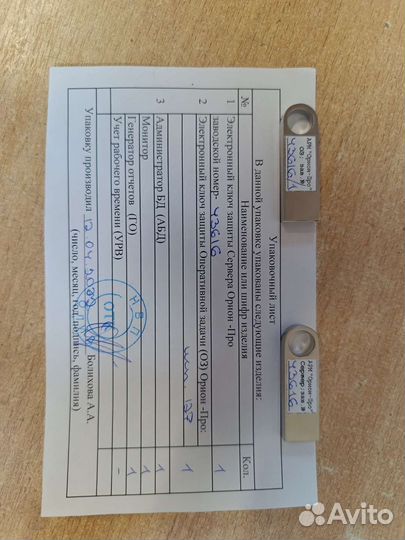 Упаковочный лист
В данной упаковке упакованы следующие изделия:
№ Наименование или шифр изделия Кол.
1 Электронный ключ защиты Сервера Орион -Про
заводской номер- 43616 1
2 Электронный ключ защиты Оперативной задачи (ОЗ) Орион -Про:
исп. 127 1
3 Администратор БД (АБД) 1
Монитор 1
Генератор отчетов (ГО) 1
Учет рабочего времени (УРВ) –
Упаковку производил 12.04. Болихова А.А.
(число, месяц, год, подпись, фамилия)
НВП
ОТК
АРМ "Орион-Про"
ОЗ: зав №
43616/1
АРМ "Орион-Про"
Сервер: зав №
43616
Avito